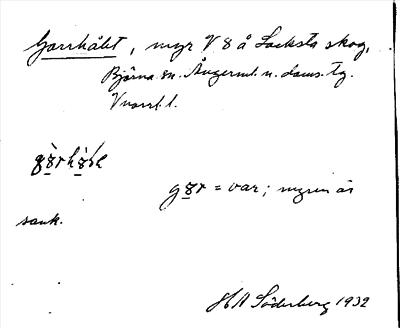 Garrhålet, myr V 8 å Locksta skog,
Björna sn. Ångerml. n. doms. tg.
V norrl.
g8r = var; myren är
sank.
H A Söderberg 1932